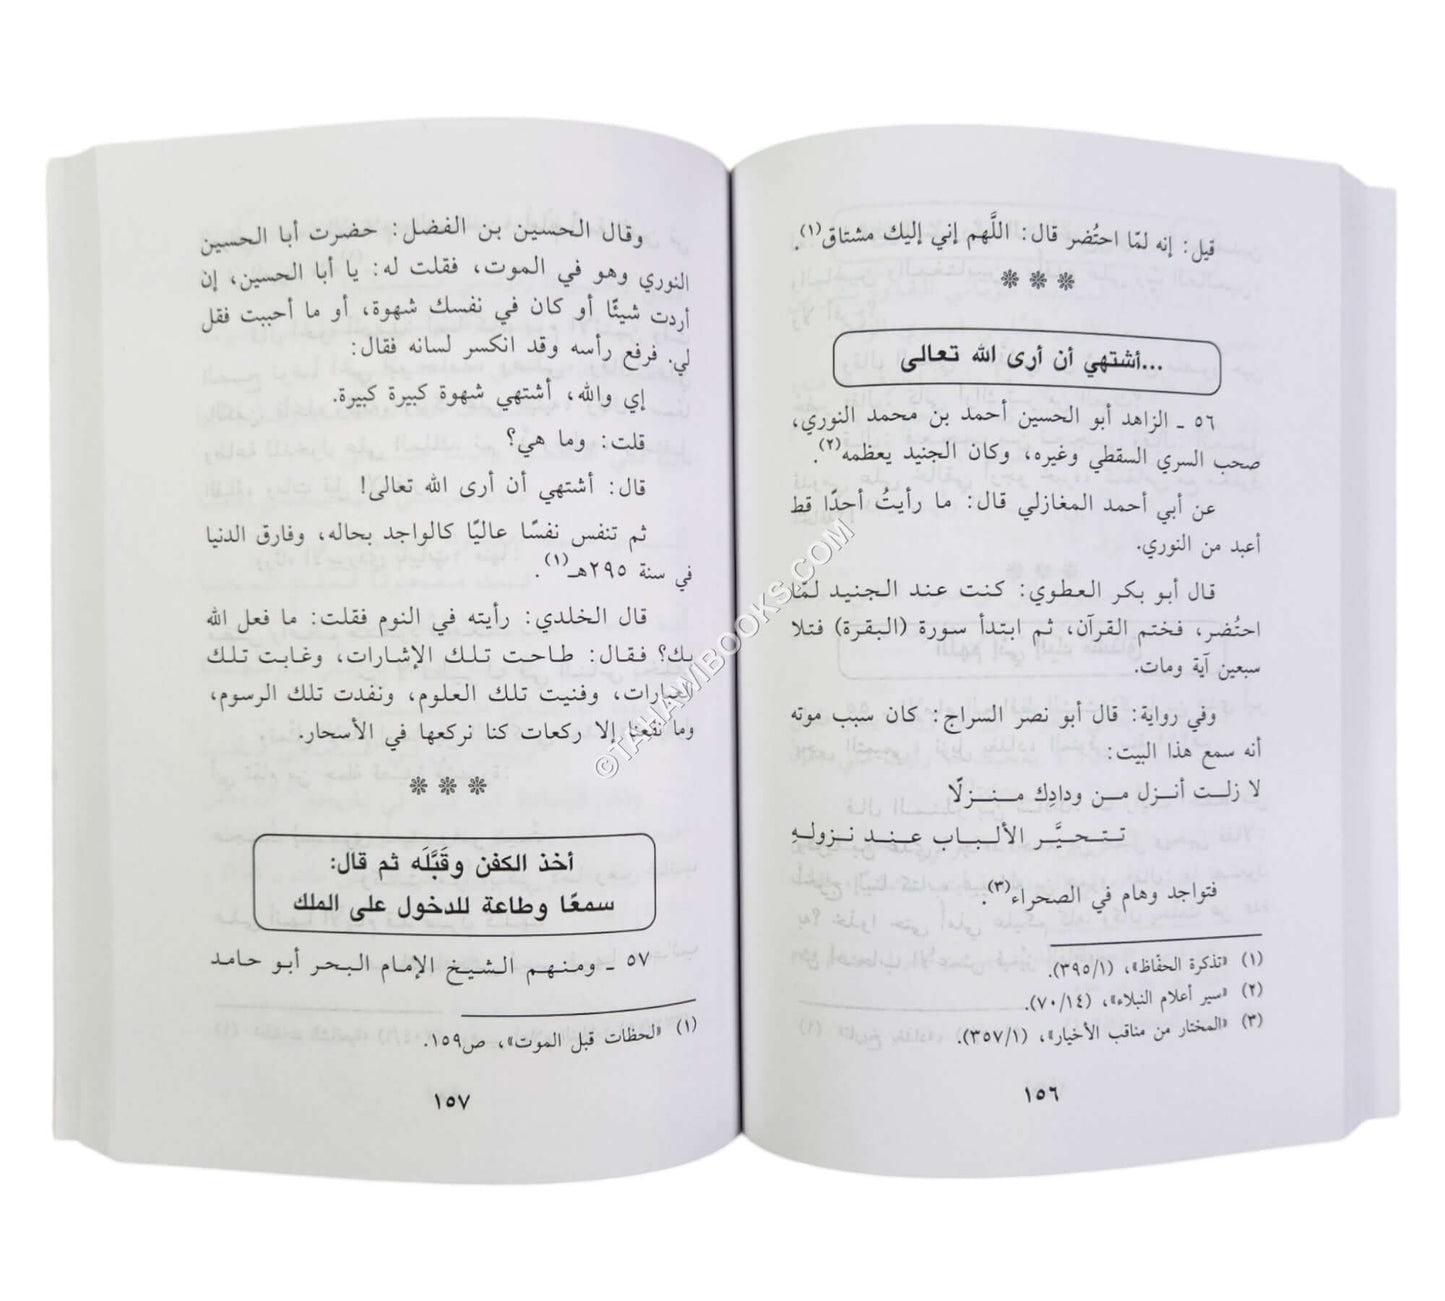 قيل: إنه لمّا احتُضر قال: اللَّهم إني إليك مشتاق(١).
❊ ❊ ❊
...أشتهي أن أرى الله تعالى
٥٦ ـ الزاهد أبو الحسين أحمد بن محمد النوري،
صحب السري السقطي وغيره، وكان الجنيد يعظمه(٢).
عن أبي أحمد المغازلي قال: ما رأيتُ أحدًا قط
أعبد من النوري.
قال أبو بكر العطوي: كنت عند الجنيد لمّا
احتُضر، فختم القرآن، ثم ابتدأ سورة (البقرة) فتلا
سبعين آية ومات.
وفي رواية: قال أبو نصر السراج: كان سبب موته
أنه سمع هذا البيت:
لا زلت أنزل من ودادِك منزلًا
تتحيَّر الألباب عند نزولهِ
فتواجد وهام في الصحراء(٣).
(١) «تذكرة الحفّاظ»، (٣٩٥/١).
(٢) «سير أعلام النبلاء»، (٧٠/١٤).
(٣) «المختار من مناقب الأخيار»، (٣٥٧/١).
١٥٦
وقال الحسين بن الفضل: حضرت أبا الحسين
النوري وهو في الموت، فقلت له: يا أبا الحسين، إن
أردت شيئًا أو كان في نفسك شهوة، أو ما أحببت فقل
لي. فرفع رأسه وقد انكسر لسانه فقال:
إي والله، أشتهي شهوة كبيرة كبيرة.
قلت: وما هي؟
قال: أشتهي أن أرى الله تعالى!
ثم تنفس نفسًا عاليًا كالواجد بحاله، وفارق الدنيا
في سنة ٢٩٥هـ(١).
قال الخلدي: رأيته في النوم فقلت: ما فعل الله
بك؟ فقال: طاحت تلك الإشارات، وغابت تلك
العبارات، وفنيت تلك العلوم، ونفدت تلك الرسوم،
وما نفعنا إلا ركعات كنا نركعها في الأسحار.
❊ ❊ ❊
أخذ الكفن وقَبَّلَه ثم قال:
سمعًا وطاعة للدخول على الملك
٥٧ ـ ومنهم الشيخ الإمام البحر أبو حامد
(١) «لحظات قبل الموت»، ص١٥٩.
١٥٧
©TAHAWIBOOKS.COM